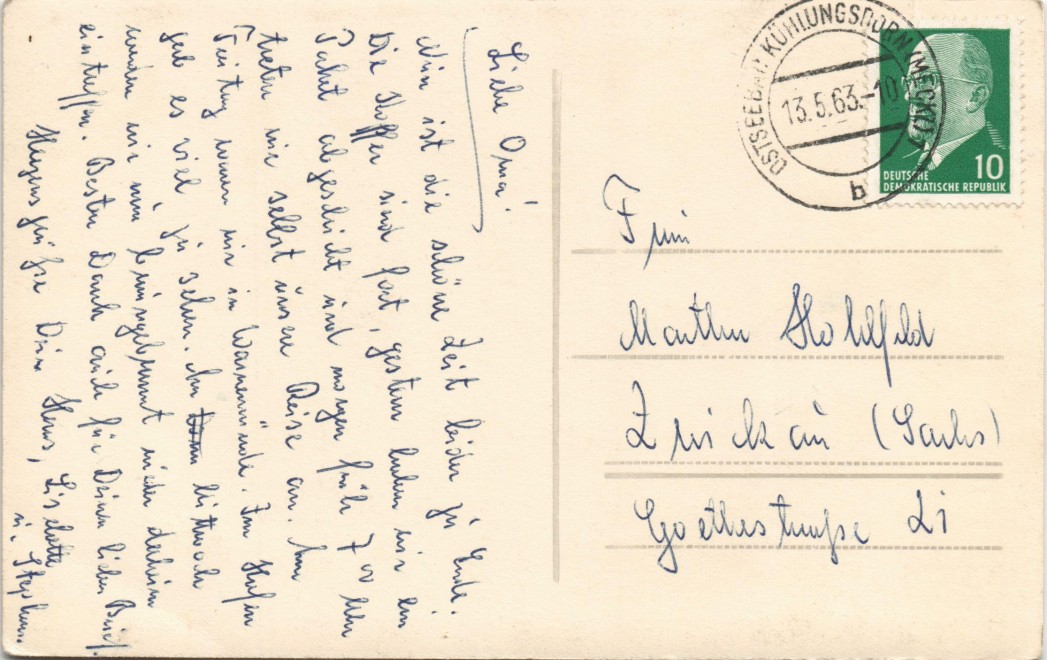 Liebe Oma!
Nun ist die schöne Zeit leider zu Ende.
Die Koffer sind fort, gestern haben wir ein
Paket abgeschickt und morgen früh 7 00 Uhr
treten wir selbst unsere Reise an. Am
Freitag waren wir in Warnemünde. Im Hafen
gab es viel zu sehen. Am Mittwoch
werden wir nun braungebrannt wieder daheim
eintreffen. Besten Dank auch für Deinen lieben Brief.
Herzensgrüße Deine Hans, Liselotte
u. Stephan.
OSTSEEBAD KÜHLUNGSBORN (MECKL)
13.5.63.-10
b
10
DEUTSCHE
DEMOKRATISCHE REPUBLIK
Frau
Martha Hohlfeld
Zwickau (Sachs)
Goethestraße 21